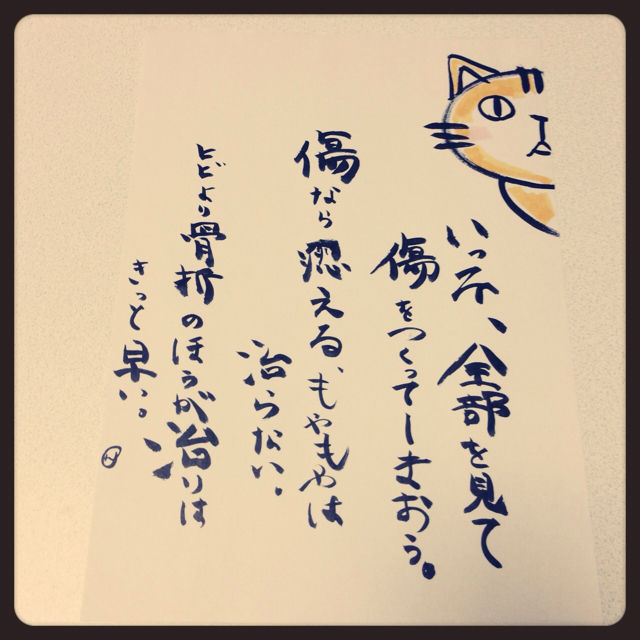 いっそ、全部を見て
傷をつくってしまおう。
傷なら癒える、もやもやは
治らない。
ヒビより骨折のほうが治りは
きっと早い。